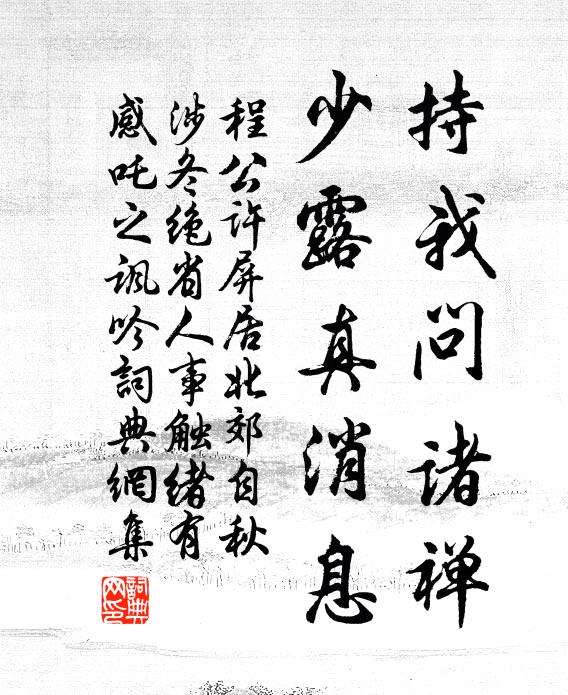 持我问诸禅
少露真消息
程公许屏居北郊自秋
涉冬绝省人事触绪有
感吒之讽吟詞典網集
詞典
网印